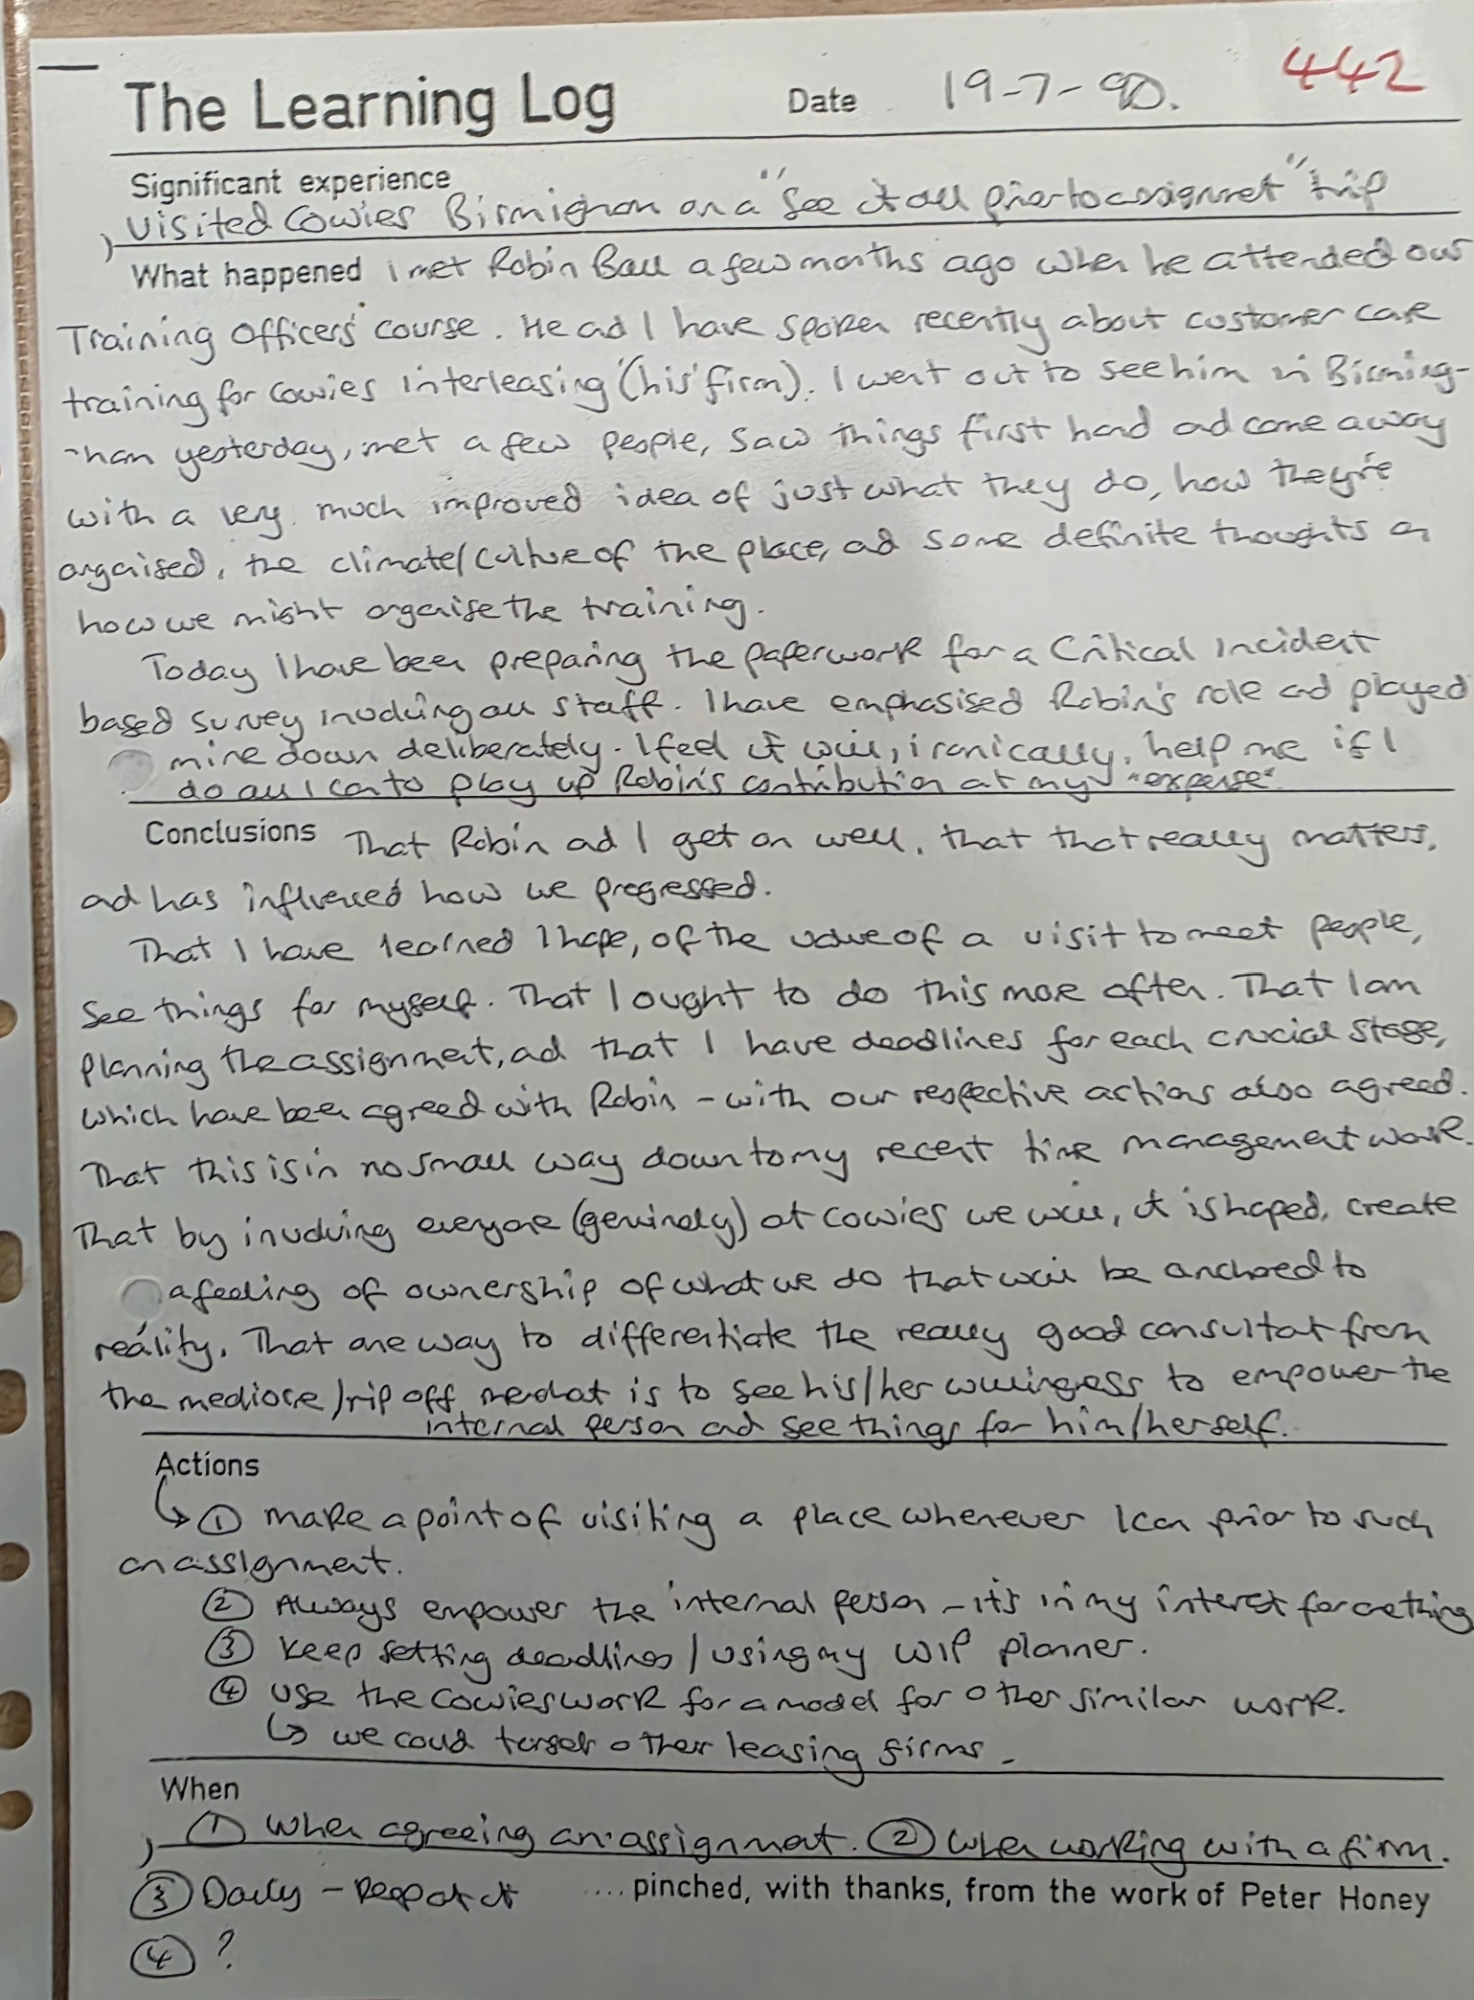 The Learning Log Date 19-7-90. 442
Significant experience
Visited Cowies Birmingham on a "See it all prior to assignment" trip
What happened i met Robin Ball a few months ago when he attended our
Training Officers' course. He and I have spoken recently about customer care
training for Cowies Interleasing (his firm). I went out to see him in Birming-
-ham yesterday, met a few people, saw things first hand and come away
with a very much improved idea of just what they do, how they're
organised, the climate/culture of the place, and some definite thoughts on
how we might organise the training.
Today I have been preparing the paperwork for a Critical Incident
based survey involving all staff. I have emphasised Robin's role and played
mine down deliberately. I feel it will, ironically, help me if I
do all I can to play up Robin's contribution at my "expense".
Conclusions That Robin and I get on well, that that really matters,
and has influenced how we progressed.
That I have learned I hope, of the value of a visit to meet people,
see things for myself. That I ought to do this more often. That I am
planning the assignment, and that I have deadlines for each crucial stage,
which have been agreed with Robin - with our respective actions also agreed.
That this is in no small way down to my recent time management work.
That by involving everyone (genuinely) at Cowies we will, it is hoped, create
a feeling of ownership of what we do that will be anchored to
reality. That one way to differentiate the really good consultant from
the mediocre/rip off merchant is to see his/her willingness to empower the
internal person and see things for him/herself.
Actions
↳ ① make a point of visiting a place whenever I can prior to such
an assignment.
② Always empower the internal person - it's in my interest for one thing
③ Keep setting deadlines / using my WIP planner.
④ use the Cowies work for a model for other similar work.
↳ we could target other leasing firms -
When
① When agreeing an assignment. ② When working with a firm.
③ Daily - Repeat it ....pinched, with thanks, from the work of Peter Honey
④ ?